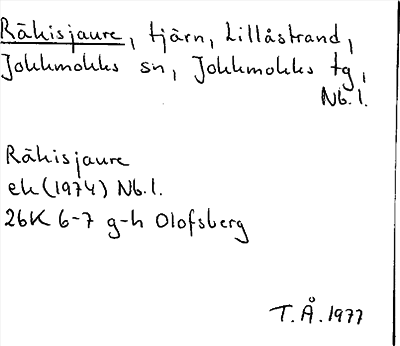 Räkisjaure, tjärn, Lillåstrand,
Jokkmokks sn, Jokkmokks tg,
Nb.l.
Räkisjaure
ek (1974) Nb.l.
26K 6-7 g-h Olofsberg
T.Å. 1977